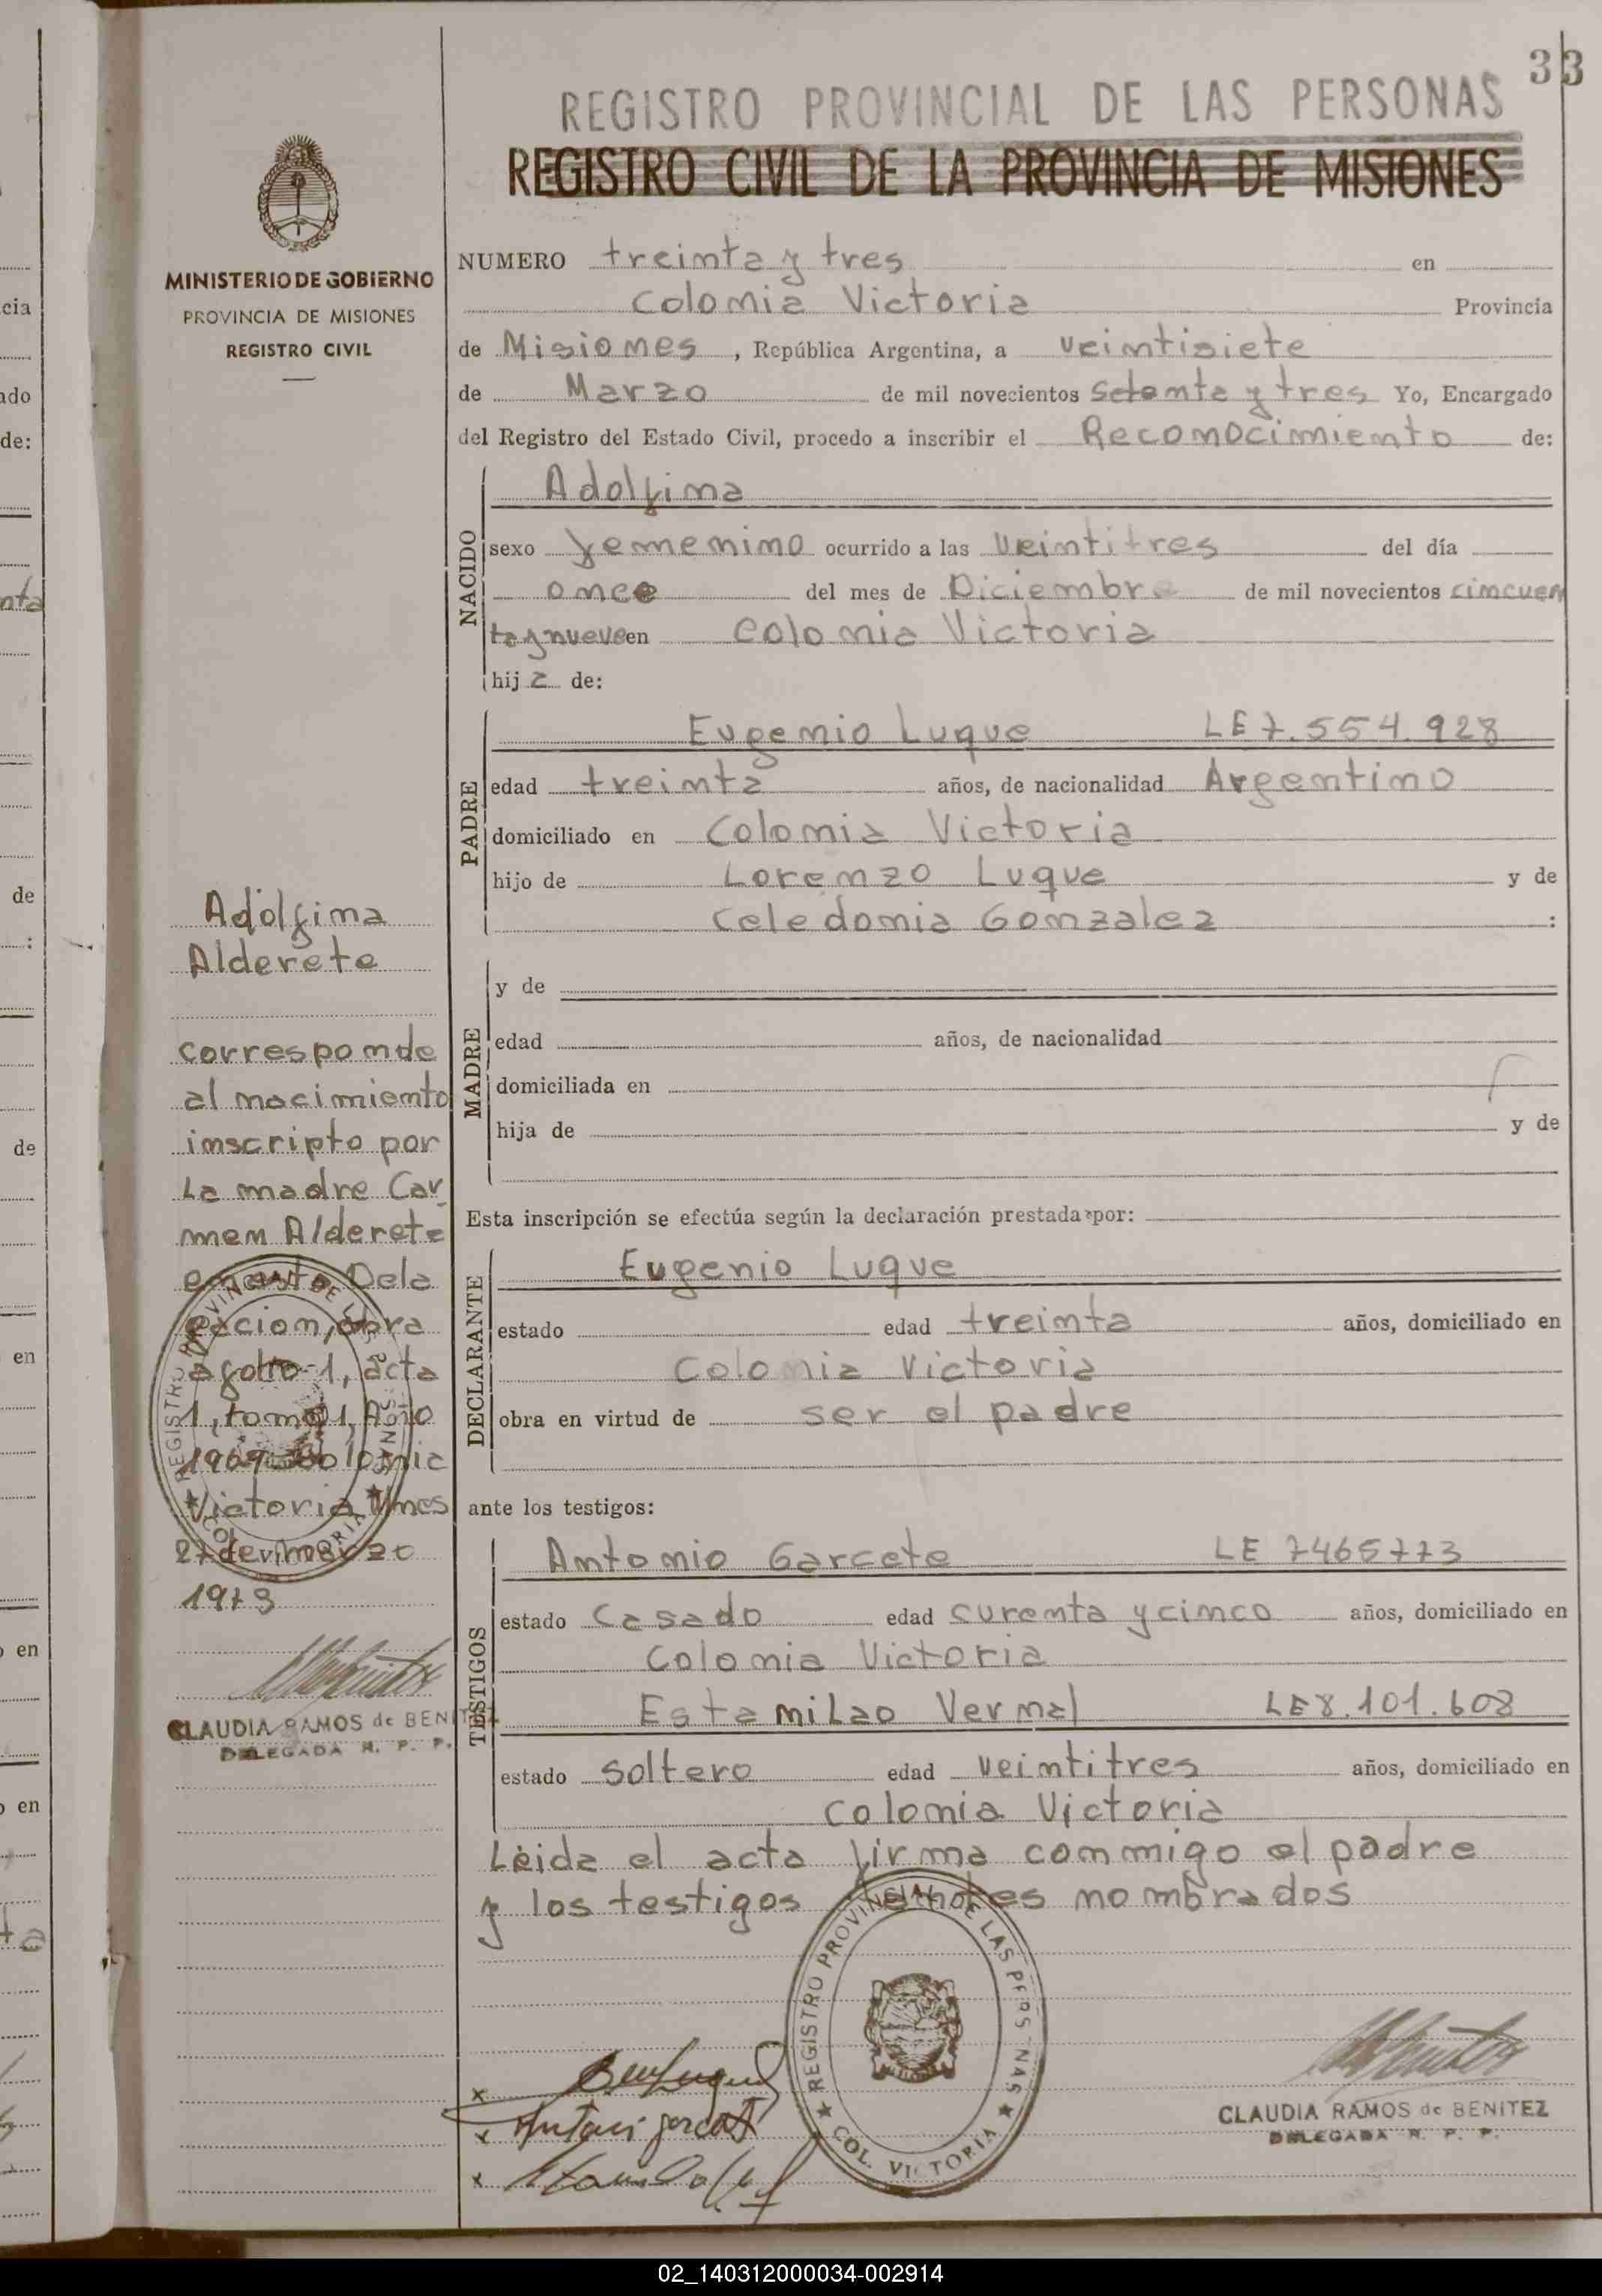 33
REGISTRO PROVINCIAL DE LAS PERSONAS
REGISTRO CIVIL DE LA PROVINCIA DE MISIONES
MINISTERIO DE GOBIERNO
PROVINCIA DE MISIONES
REGISTRO CIVIL
NUMERO treinta y tres en
Colonia Victoria Provincia
de Misiones, República Argentina, a veintisiete
de Marzo de mil novecientos Setenta y tres Yo, Encargado
del Registro del Estado Civil, procedo a inscribir el Reconocimiento de:
NACIDO
Adolfina
sexo femenino ocurrido a las veintitres del día
once del mes de Diciembre de mil novecientos cincuen
ta y nueve en Colonia Victoria
hija de:
PADRE
Eugenio Luque LE 7.554.928
edad treinta años, de nacionalidad Argentino
domiciliado en Colonia Victoria
hijo de Lorenzo Luque y de
Celedonia Gonzalez :
MADRE
y de
edad años, de nacionalidad
domiciliada en
hija de y de
Esta inscripción se efectúa según la declaración prestada por:
DECLARANTE
Eugenio Luque
estado edad treinta años, domiciliado en
Colonia Victoria
obra en virtud de ser el padre
ante los testigos:
TESTIGOS
Antonio Garcete LE 7465773
estado Casado edad curenta y cinco años, domiciliado en
Colonia Victoria
Estanilao Vernal LE 8.101.608
estado soltero edad veintitres años, domiciliado en
Colonia Victoria
Leida el acta firma conmigo el padre
y los testigos nombrados
REGISTRO PROVINCIAL DE LAS PERSONAS
COL. VICTORIA
CLAUDIA RAMOS de BENITEZ
DELEGADA R. P. P.
Adolfina
Alderete
corresponde
al nacimiento
inscripto por
La madre Car
men Alderete
en esta Dele
gacion, obra
a folio-1, acta
1, tomo 1, Año
1969 Colonia
Victoria Mnes
27 de marzo
1973
REGISTRO PROVINCIAL DE LAS PERSONAS
COL. VICTORIA
CLAUDIA RAMOS de BENITEZ
DELEGADA R. P. P.
cia
ado
de:
nta
de
:
de
en
en
en
ta
02_140312000034-002914